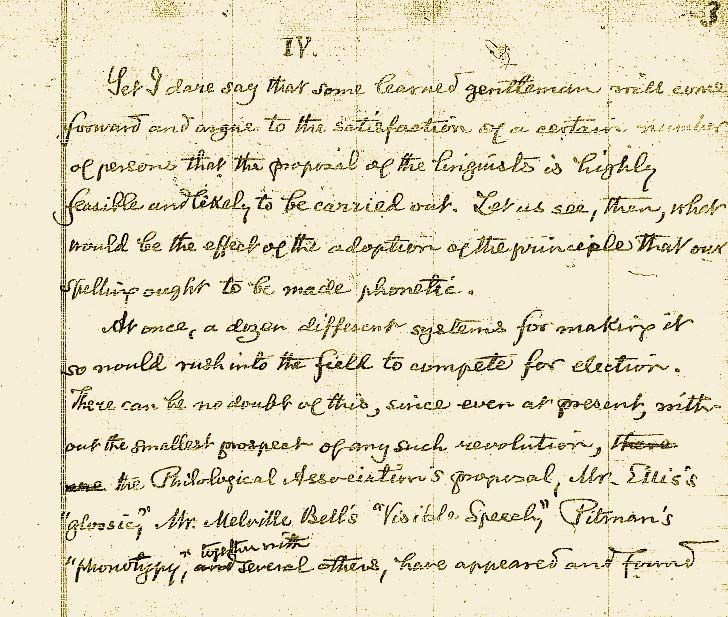 3
IV.
Yet I dare say that some learned gentleman will come
forward and argue to the satisfaction of a certain number
of persons that the proposal of the linguists is highly
feasible and likely to be carried out. Let us see, then, what
would be the effect of the adoption of the principle that our
spelling ought to be made phonetic.
At once, a dozen different systems for making it
so would rush into the field to compete for election.
There can be no doubt of this, since even at present, with-
out the smallest prospect of any such revolution, there
are the Philological Association's proposal, Mr. Ellis's
"glossic," Mr. Melville Bell's "Visible Speech," Pitman's
together with
"phonotypy," and several others, have appeared and found